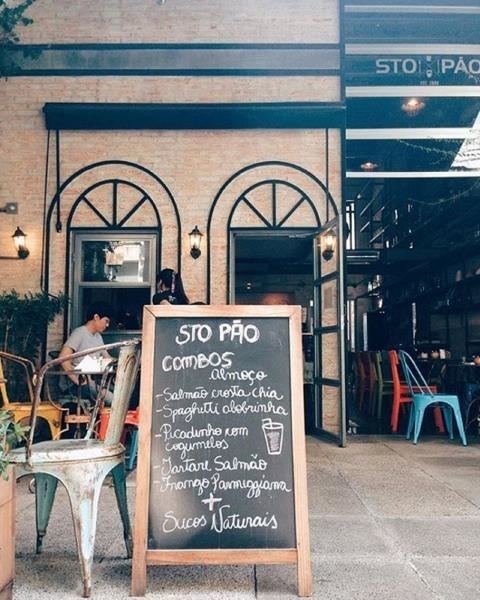 STO PÃO
STO PÃO
COMBOS
almoço
- Salmão crosta chia
- Spaghetti abobrinha
- Picadinho com
cogumelos
- Tartare Salmão
- Frango Parmeggiana
+
Sucos Naturais